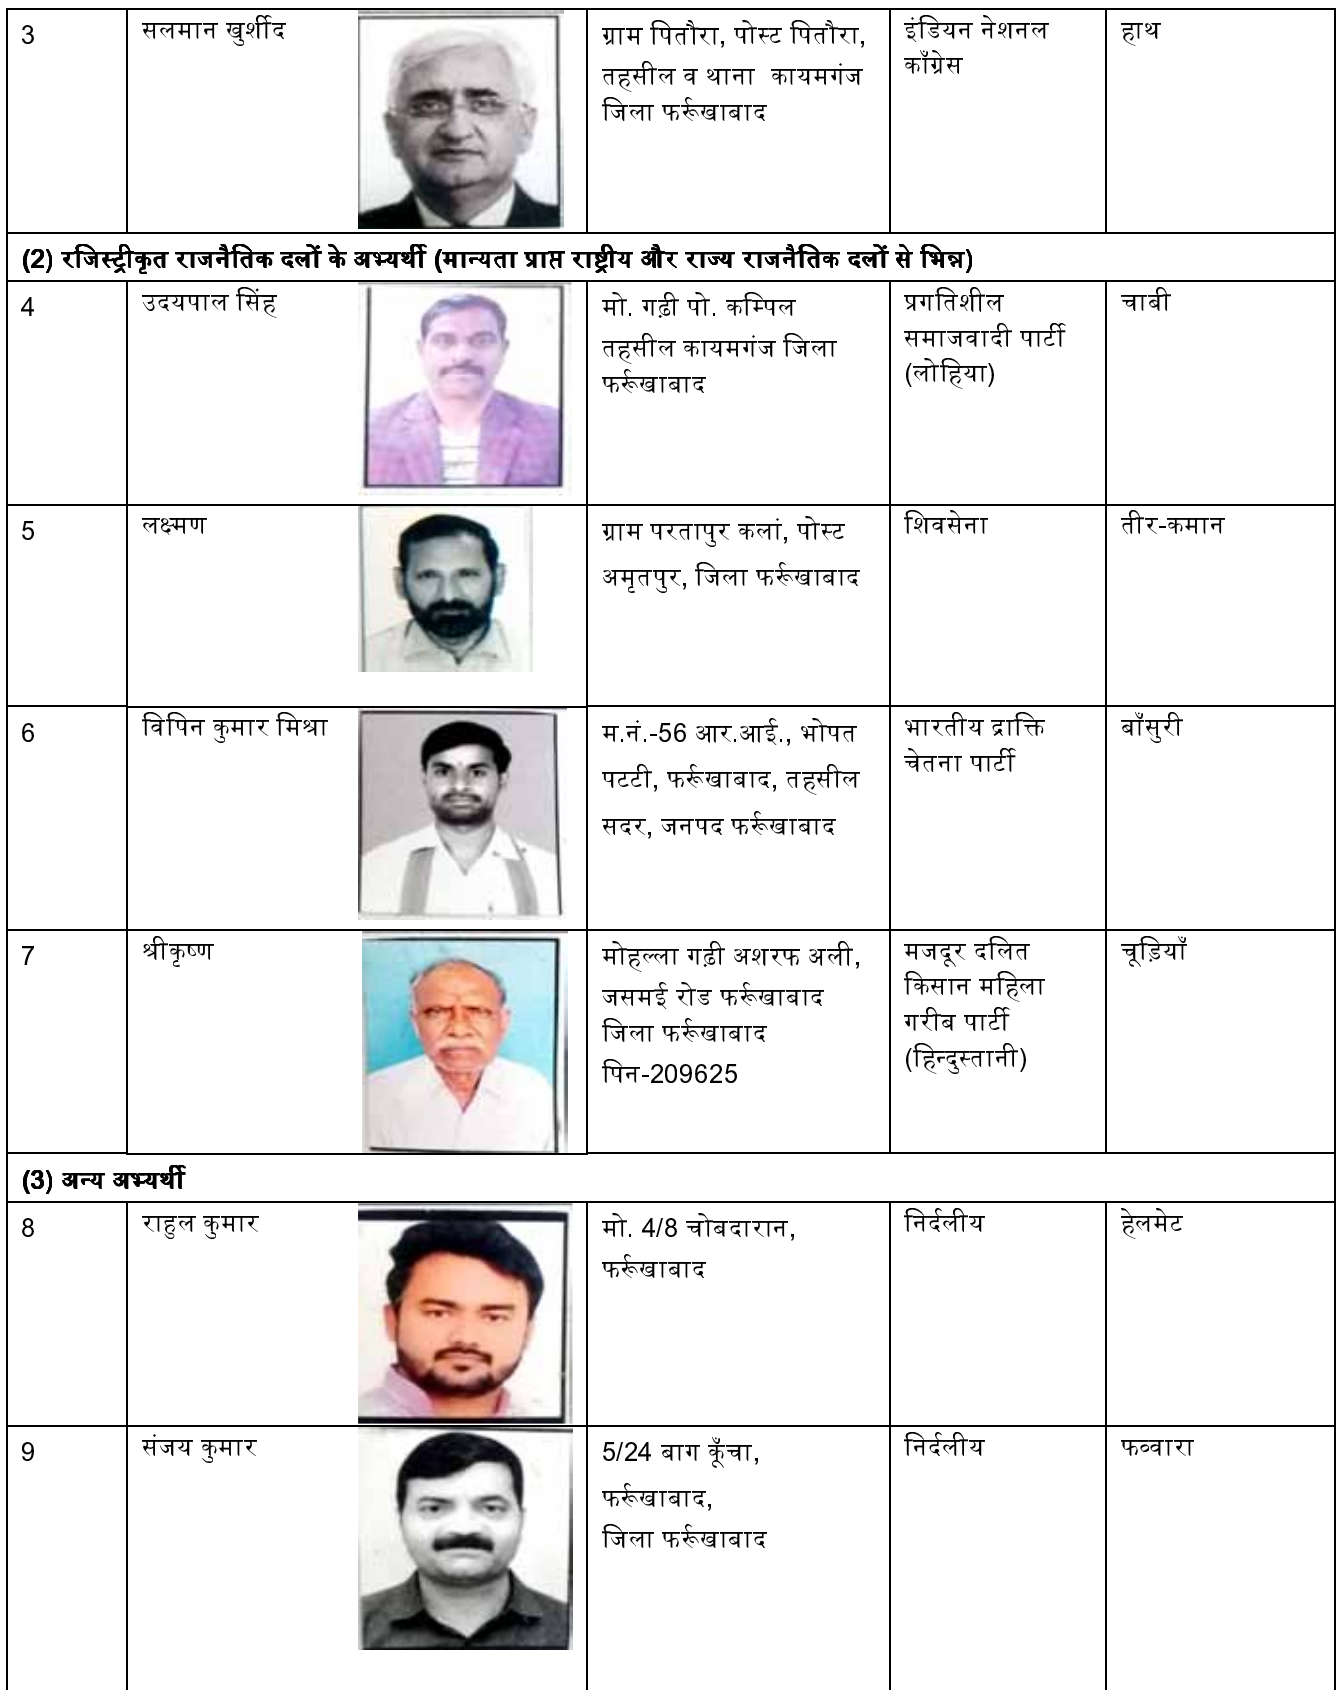 3
सलमान खुर्शीद
ग्राम पितौरा, पोस्ट पितौरा,
तहसील व थाना कायमगंज
जिला फर्रूखाबाद
इंडियन नेशनल
काँग्रेस
हाथ
(2) रजिस्ट्रीकृत राजनैतिक दलों के अभ्यर्थी (मान्यता प्राप्त राष्ट्रीय और राज्य राजनैतिक दलों से भिन्न)
4
उदयपाल सिंह
मो. गढ़ी पो. कम्पिल
तहसील कायमगंज जिला
फर्रूखाबाद
प्रगतिशील
समाजवादी पार्टी
(लोहिया)
चाबी
5
लक्ष्मण
ग्राम परतापुर कलां, पोस्ट
अमृतपुर, जिला फर्रूखाबाद
शिवसेना
तीर-कमान
6
विपिन कुमार मिश्रा
म.नं.-56 आर.आई., भोपत
पटटी, फर्रूखाबाद, तहसील
सदर, जनपद फर्रूखाबाद
भारतीय द्राक्ति
चेतना पार्टी
बाँसुरी
7
श्रीकृष्ण
मोहल्ला गढ़ी अशरफ अली,
जसमई रोड फर्रूखाबाद
जिला फर्रूखाबाद
पिन-209625
मजदूर दलित
किसान महिला
गरीब पार्टी
(हिन्दुस्तानी)
चूड़ियाँ
(3) अन्य अभ्यर्थी
8
राहुल कुमार
मो. 4/8 चोबदारान,
फर्रूखाबाद
निर्दलीय
हेलमेट
9
संजय कुमार
5/24 बाग कूँचा,
फर्रूखाबाद,
जिला फर्रूखाबाद
निर्दलीय
फव्वारा